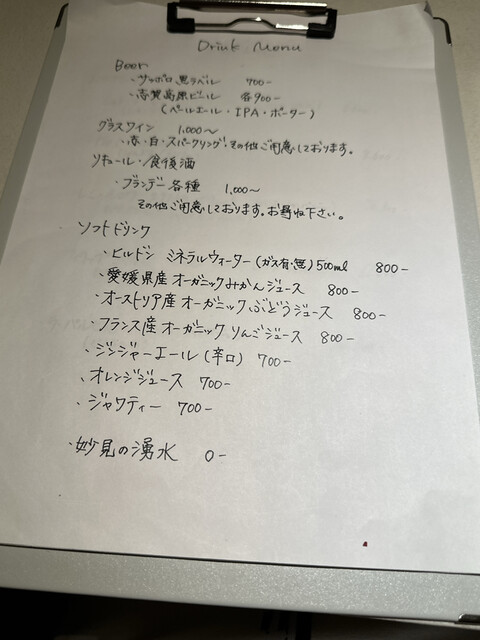 Drink Menu
Beer
・サッポロ黒ラベル 700-
・志賀高原ビール 各900-
(ペールエール・IPA・ポーター)
グラスワイン 1,000〜
・赤・白・スパークリング・その他ご用意しております。
リキュール・食後酒
・ブランデー各種 1,000〜
その他ご用意しております。お尋ね下さい。
ソフトドリンク
・ヒルドン ミネラルウォーター(ガス有・無)500ml 800-
・愛媛県産オーガニックみかんジュース 800-
・オーストリア産オーガニックぶどうジュース 800-
・フランス産オーガニックりんごジュース 800-
・ジンジャーエール(辛口) 700-
・オレンジジュース 700-
・ジャワティー 700-
・妙見の湧水 0-